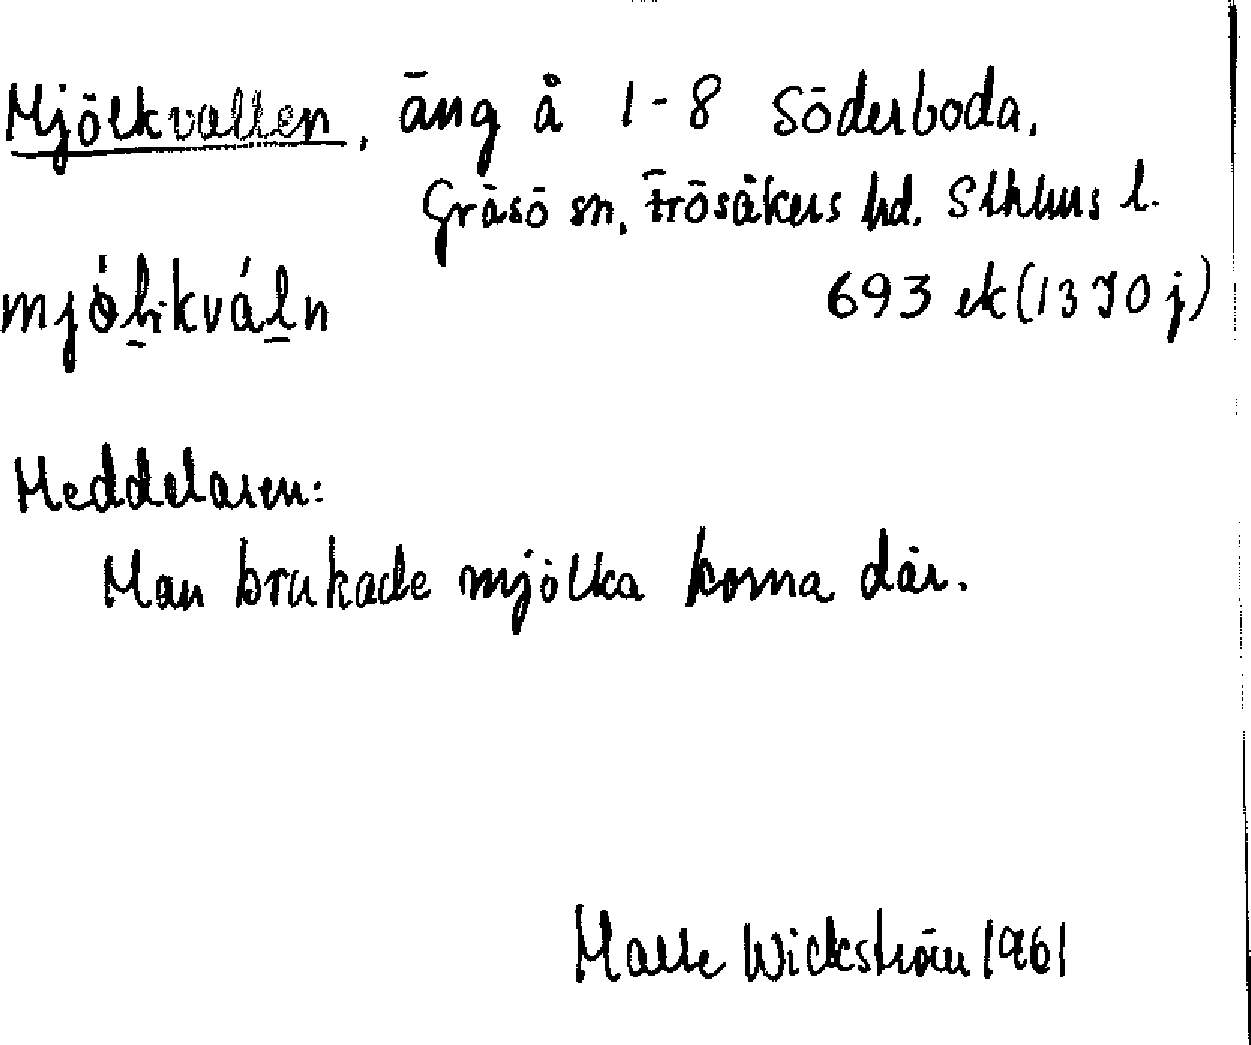 Mjölkvallen, äng å 1-8 Söderboda,
Gräsö sn, Frösåkers hd. Sthlms l.
693 ek (13 I 0 j)
Meddelaren:
Man brukade mjölka korna där.
Wickström 1961